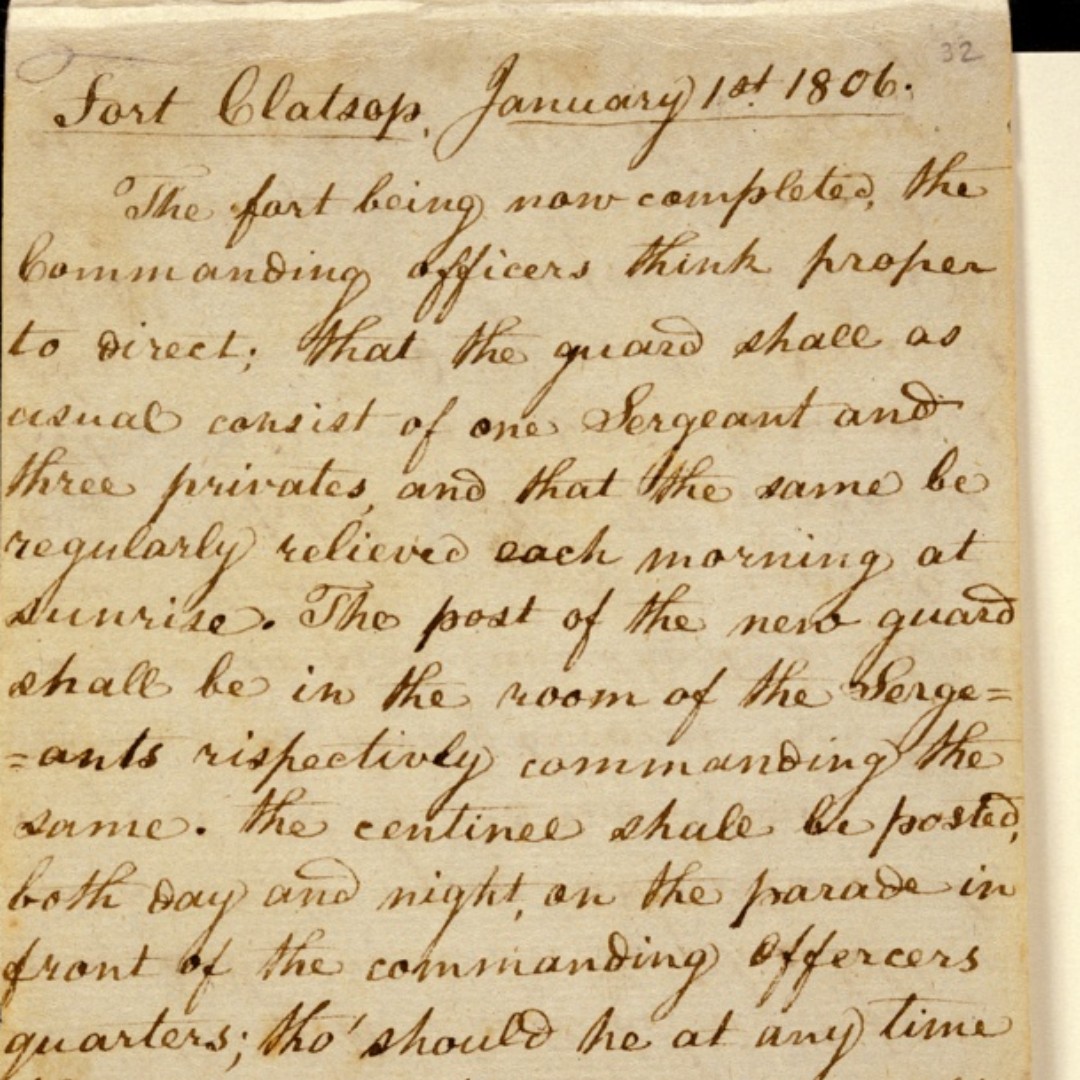 32
Fort Clatsop, January 1st 1806.
The fort being now completed, the
Commanding officers think proper
to direct; that the guard shall as
usual consist of one Sergeant and
three privates, and that the same be
regularly relieved each morning at
sunrise. The post of the new guard
shall be in the room of the Serge=
=ants rispectivly commanding the
same. the centinel shall be posted,
both day and night, on the parade in
front of the commanding offercers
quarters; tho' should he at any time